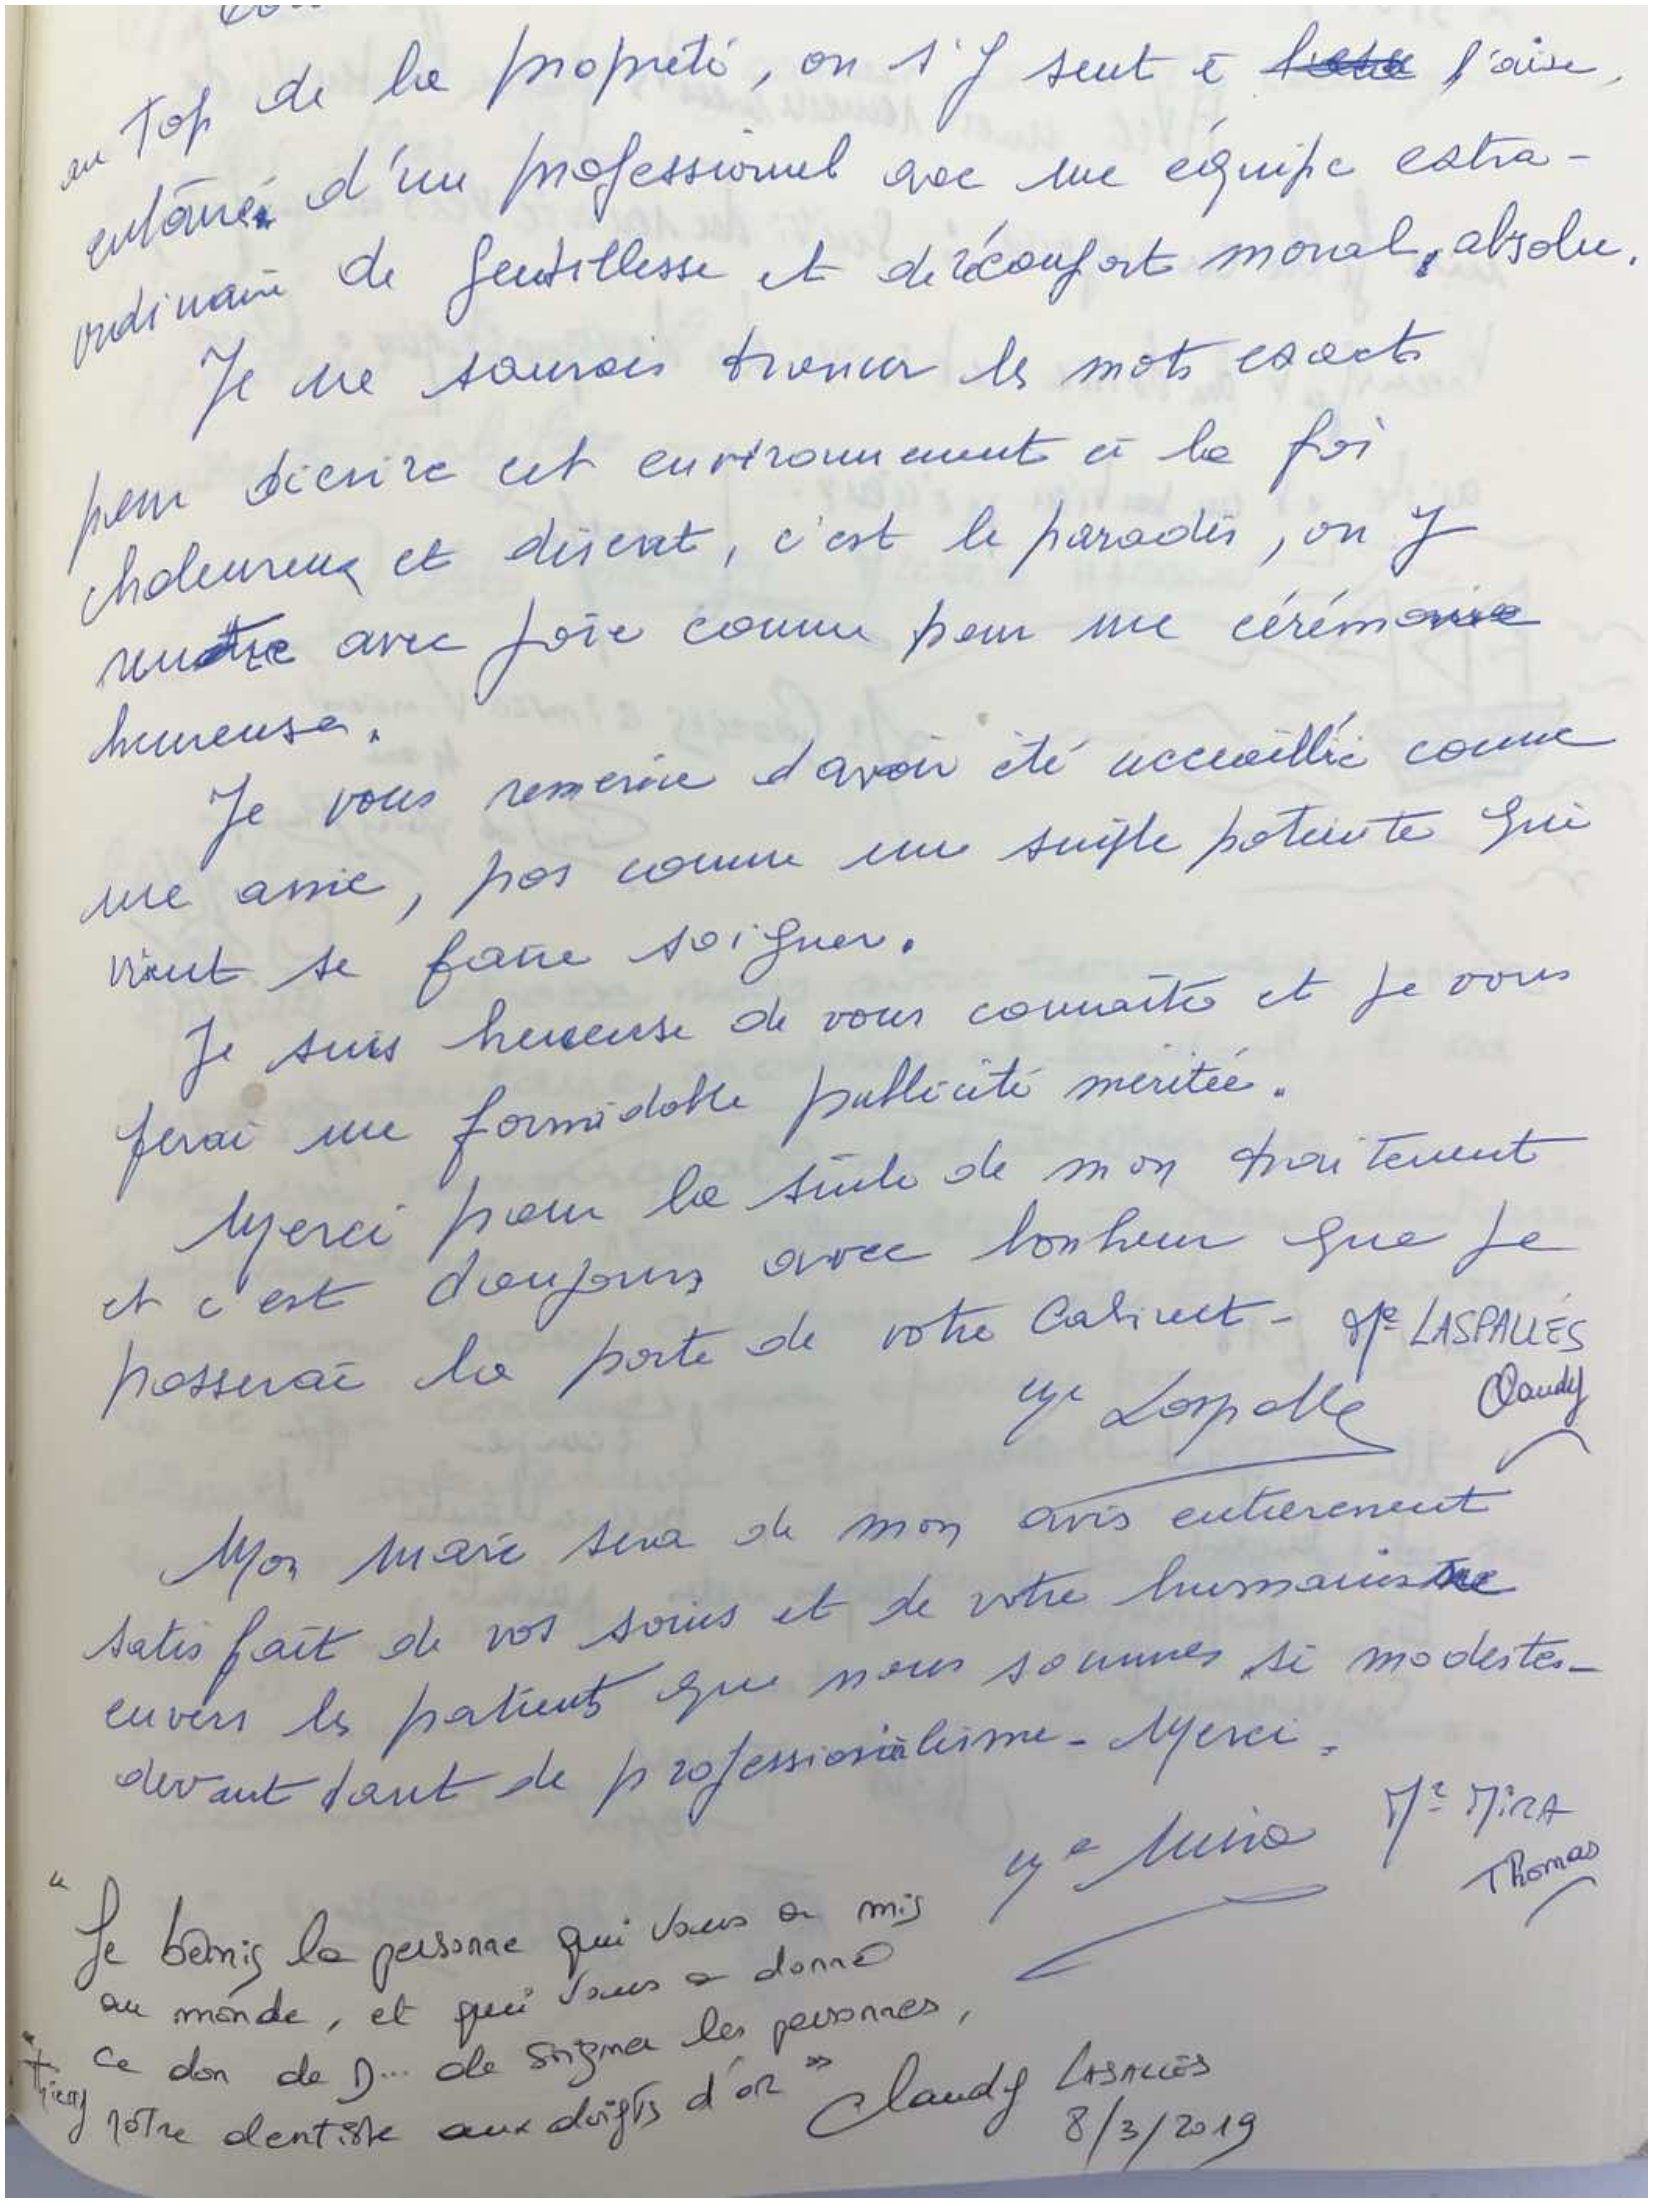 au Top de la propreté, on s'y sent à l'aise,
entouré d'un professionnel avec une équipe extra-
ordinaire de gentillesse et de réconfort moral, absolu.
Je ne saurais trouver les mots exacts
pour décrire cet environnement à la foi
chaleureux et discret, c'est le paradis, on y
rentre avec joie comme pour une cérémonie
heureuse.
Je vous remercie d'avoir été accueillie comme
une amie, pas comme une simple patiente qui
vient se faire soigner.
Je suis heureuse de vous connaître et je vous
ferai une formidable publicité méritée.
Merci pour la suite de mon traitement
et c'est toujours avec bonheur que je
passerai la porte de votre Cabinet - Me LASPALLES
Me Laspalle Claudy
Mon mari sera de mon avis entièrement
satisfait de vos soins et de votre humanisme
envers les patients que nous sommes si modestes -
devant tant de professionalisme - Merci.
Me Mira Mr MIRA
Thomas
"Je bénis la personne qui vous a mis
au monde, et qui vous a donné
ce don de D... de soigner les personnes,
"Thierry notre dentiste aux doigts d'or" Claudy LASALLES
8/3/2019